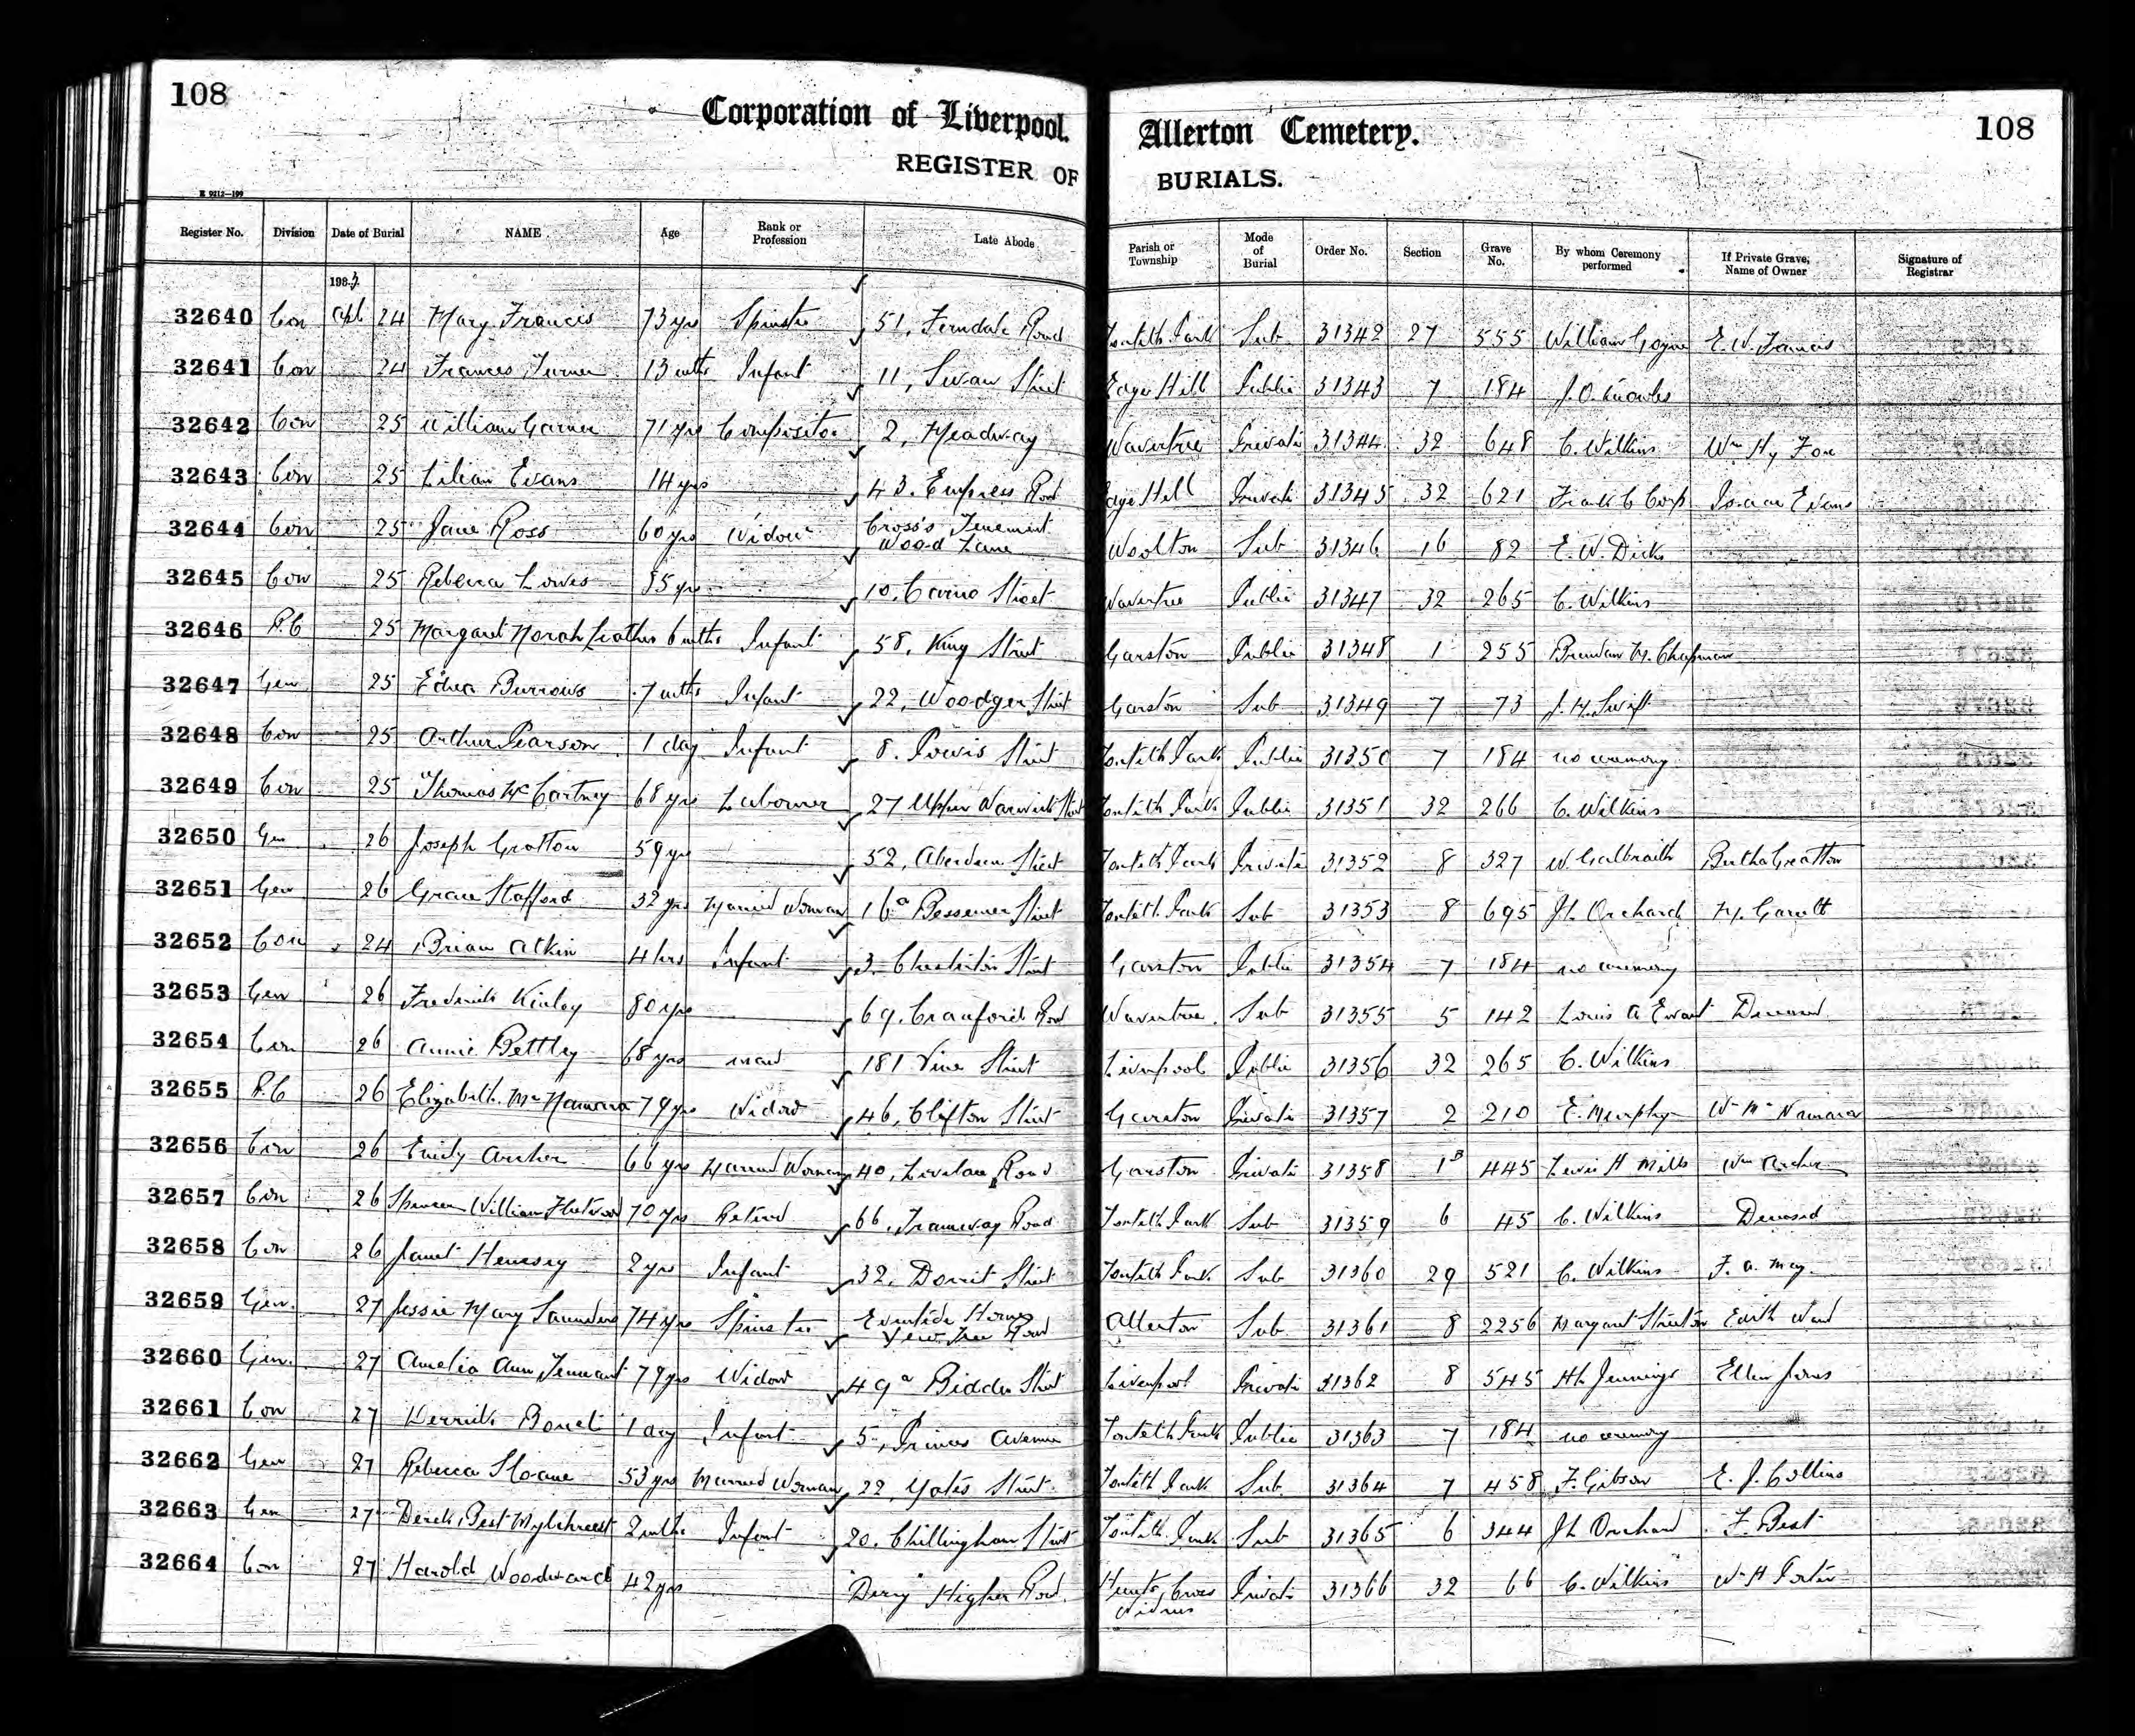 108
Corporation of Liverpool. Allerton Cemetery.
108
REGISTER OF BURIALS.
Register No. Division Date of Burial NAME Age Rank or Profession Late Abode Parish or Township Mode of Burial Order No. Section Grave No. By whom Ceremony performed If Private Grave, Name of Owner Signature of Registrar
32640 Con Apl 24 Mary Francis 73 yrs Spinster 51, Ferndale Road Toxteth Park Sub 31342 27 555 William Goyne E. W. Francis
32641 Con 24 Frances Turner 13 mths Infant 11, Swan Street Edge Hill Public 31343 7 184 J. O. Knowles
32642 Con 25 William Garner 71 yrs Compositor 2, Meadway Wavertree Private 31344 32 648 C. Wilkins Wm Hy Fox
32643 Con 25 Lilian Evans 14 yrs 43. Empress Road Edge Hill Private 31345 32 621 Frank C Evans
32644 Con 25 Jane Ross 60 yrs Widow Cross's Tenement Wood Lane Woolton Sub 31346 16 82 E. W. Dicks
32645 Con 25 Rebecca Lowes 85 yrs 10, Street Wavertree Public 31347 32 265 C. Wilkins
32646 R.C 25 Margaret Norah Leather 6 mths Infant 58, King Street Garston Public 31348 1 255 Brendan M. Chapman
32647 Gen 25 Edna Burrows 7 mths Infant 22, Woodger Street Garston Sub 31349 7 73 J. H. Swift
32648 Con 25 Arthur Pearson 1 day Infant 8. Powis Street Toxteth Park Public 31350 7 184 no ceremony
32649 Con 25 Thomas McCartney 68 yrs Labourer 27 Upper Warwick Street Toxteth Park Public 31351 32 266 C. Wilkins
32650 Gen 26 Joseph Gratton 59 yrs 52, Aberdeen Street Toxteth Park Private 31352 8 327 W. Galbraith Bertha Gratton
32651 Gen 26 Grace Stafford 32 yrs Married Woman 16a Bessemer Street Toxteth Park Sub 31353 8 695 J L Orchard
32652 Con 24 Brian Atkin 4 hrs Infant 3. Chesterton Street Garston Public 31354 7 184 no ceremony
32653 Gen 26 Frederick Kinley 80 yrs 69. Cranford Road Wavertree Sub 31355 5 142 Louis A Ewart Deceased
32654 Con 26 Annie Bettley 68 yrs maid 181 Vine Street Liverpool Public 31356 32 265 C. Wilkins
32655 R.C 26 Elizabeth McNamara 79 yrs Widow 46, Clifton Street Garston Private 31357 2 210 E. Murphy Wm McNamara
32656 Con 26 Emily Archer 66 yrs Married Woman 40, Road Garston Private 31358 1B 445 Lewis H Mills Wm Archer
32657 Con 26 Spencer William Fleetwood 70 yrs Retired 66, Tramway Road Toxteth Park Sub 31359 6 45 C. Wilkins Deceased
32658 Con 26 Janet Henesey 2 yrs Infant 32, Dorrit Street Toxteth Park Sub 31360 29 521 C. Wilkins F. A. May.
32659 Gen. 27 Jessie Mary Saunders 74 yrs Spinster Eventide Homes Yew Tree Road Allerton Sub 31361 8 2256 Margaret Stretton Edith Ward
32660 Gen. 27 Amelia Ann Tennant 79 yrs Widow 49a Bidder Street Liverpool Private 31362 8 545 Hh Jennings Ellen Jones
32661 Con 27 Derrick 1 day Infant 5, Princes Avenue Toxteth Park Public 31363 7 184 no ceremony
32662 Gen 27 Rebecca Sloane 53 yrs Married Woman 22, Yates Street Toxteth Park Sub 31364 7 458 F. Gibson E. J. Collins
32663 Gen 27 Derek Best Mylchreest 2 mths Infant 20. Chillingham Street Toxteth Park Sub 31365 6 344 J L Orchard F. Best
32664 Con 27 Harold Woodward 42 yrs "Derry" Higher Road. Hunts Cross Widnes Private 31366 32 66 C. Wilkins Wm H Porter